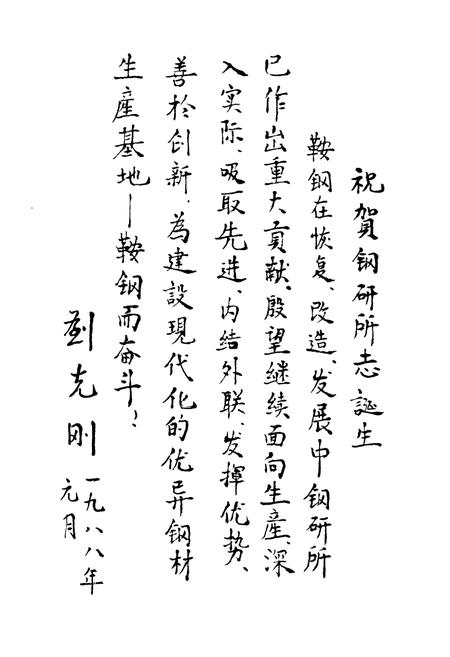 祝賀钢研所志誕生
鞍钢在恢复、改造、发展中钢研所
已作出重大贡献、殷望継续面向生產、深
入实际、吸取先进、内结外联、发揮优势、
善於创新、為建設現代化的优异钢材
生產基地—鞍钢而奋斗！
劉克刚
一九八八年
元月